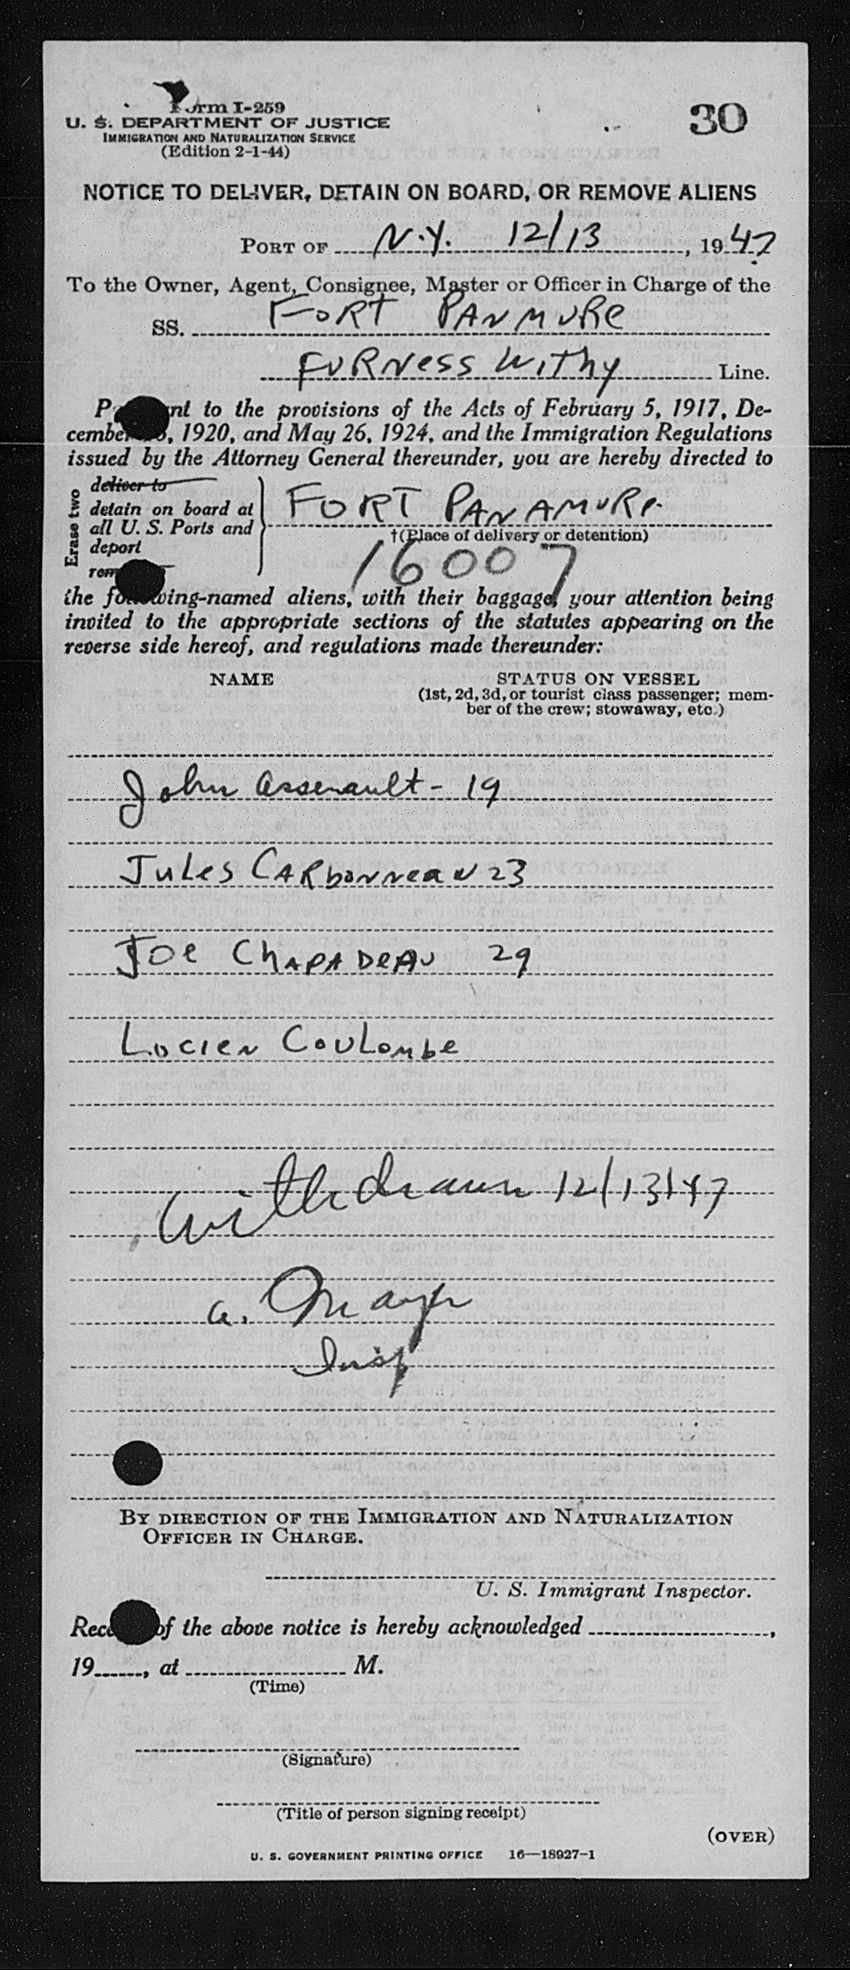 Form I-259
30
U. S. DEPARTMENT OF JUSTICE
IMMIGRATION AND NATURALIZATION SERVICE
(Edition 2-1-44)
NOTICE TO DELIVER, DETAIN ON BOARD, OR REMOVE ALIENS
PORT OF N.Y. 12/13, 1947
To the Owner, Agent, Consignee, Master or Officer in Charge of the
SS. FORT PANMURE
FURNESS WITHY Line.
nt to the provisions of the Acts of February 5, 1917, De-
cember , 1920, and May 26, 1924, and the Immigration Regulations
issued by the Attorney General thereunder, you are hereby directed to
Erase two
deliver to
detain on board at
all U. S. Ports and
deport
FORT PANAMURE
†(Place of delivery or detention)
16007
the following-named aliens, with their baggage, your attention being
invited to the appropriate sections of the statutes appearing on the
reverse side hereof, and regulations made thereunder:
NAME STATUS ON VESSEL
(1st, 2d, 3d, or tourist class passenger; mem-
ber of the crew; stowaway, etc.)
John Assenault - 19
Jules CARbonneau 23
Joe ChAPADeAU 29
Lucien Coulombe
Withdrawn 12/13/47
a. Mayr
Insp
BY DIRECTION OF THE IMMIGRATION AND NATURALIZATION
OFFICER IN CHARGE.
U. S. Immigrant Inspector.
of the above notice is hereby acknowledged ,
19 , at M.
(Time)
(Signature)
(Title of person signing receipt)
(OVER)
U. S. GOVERNMENT PRINTING OFFICE 16—18927-1